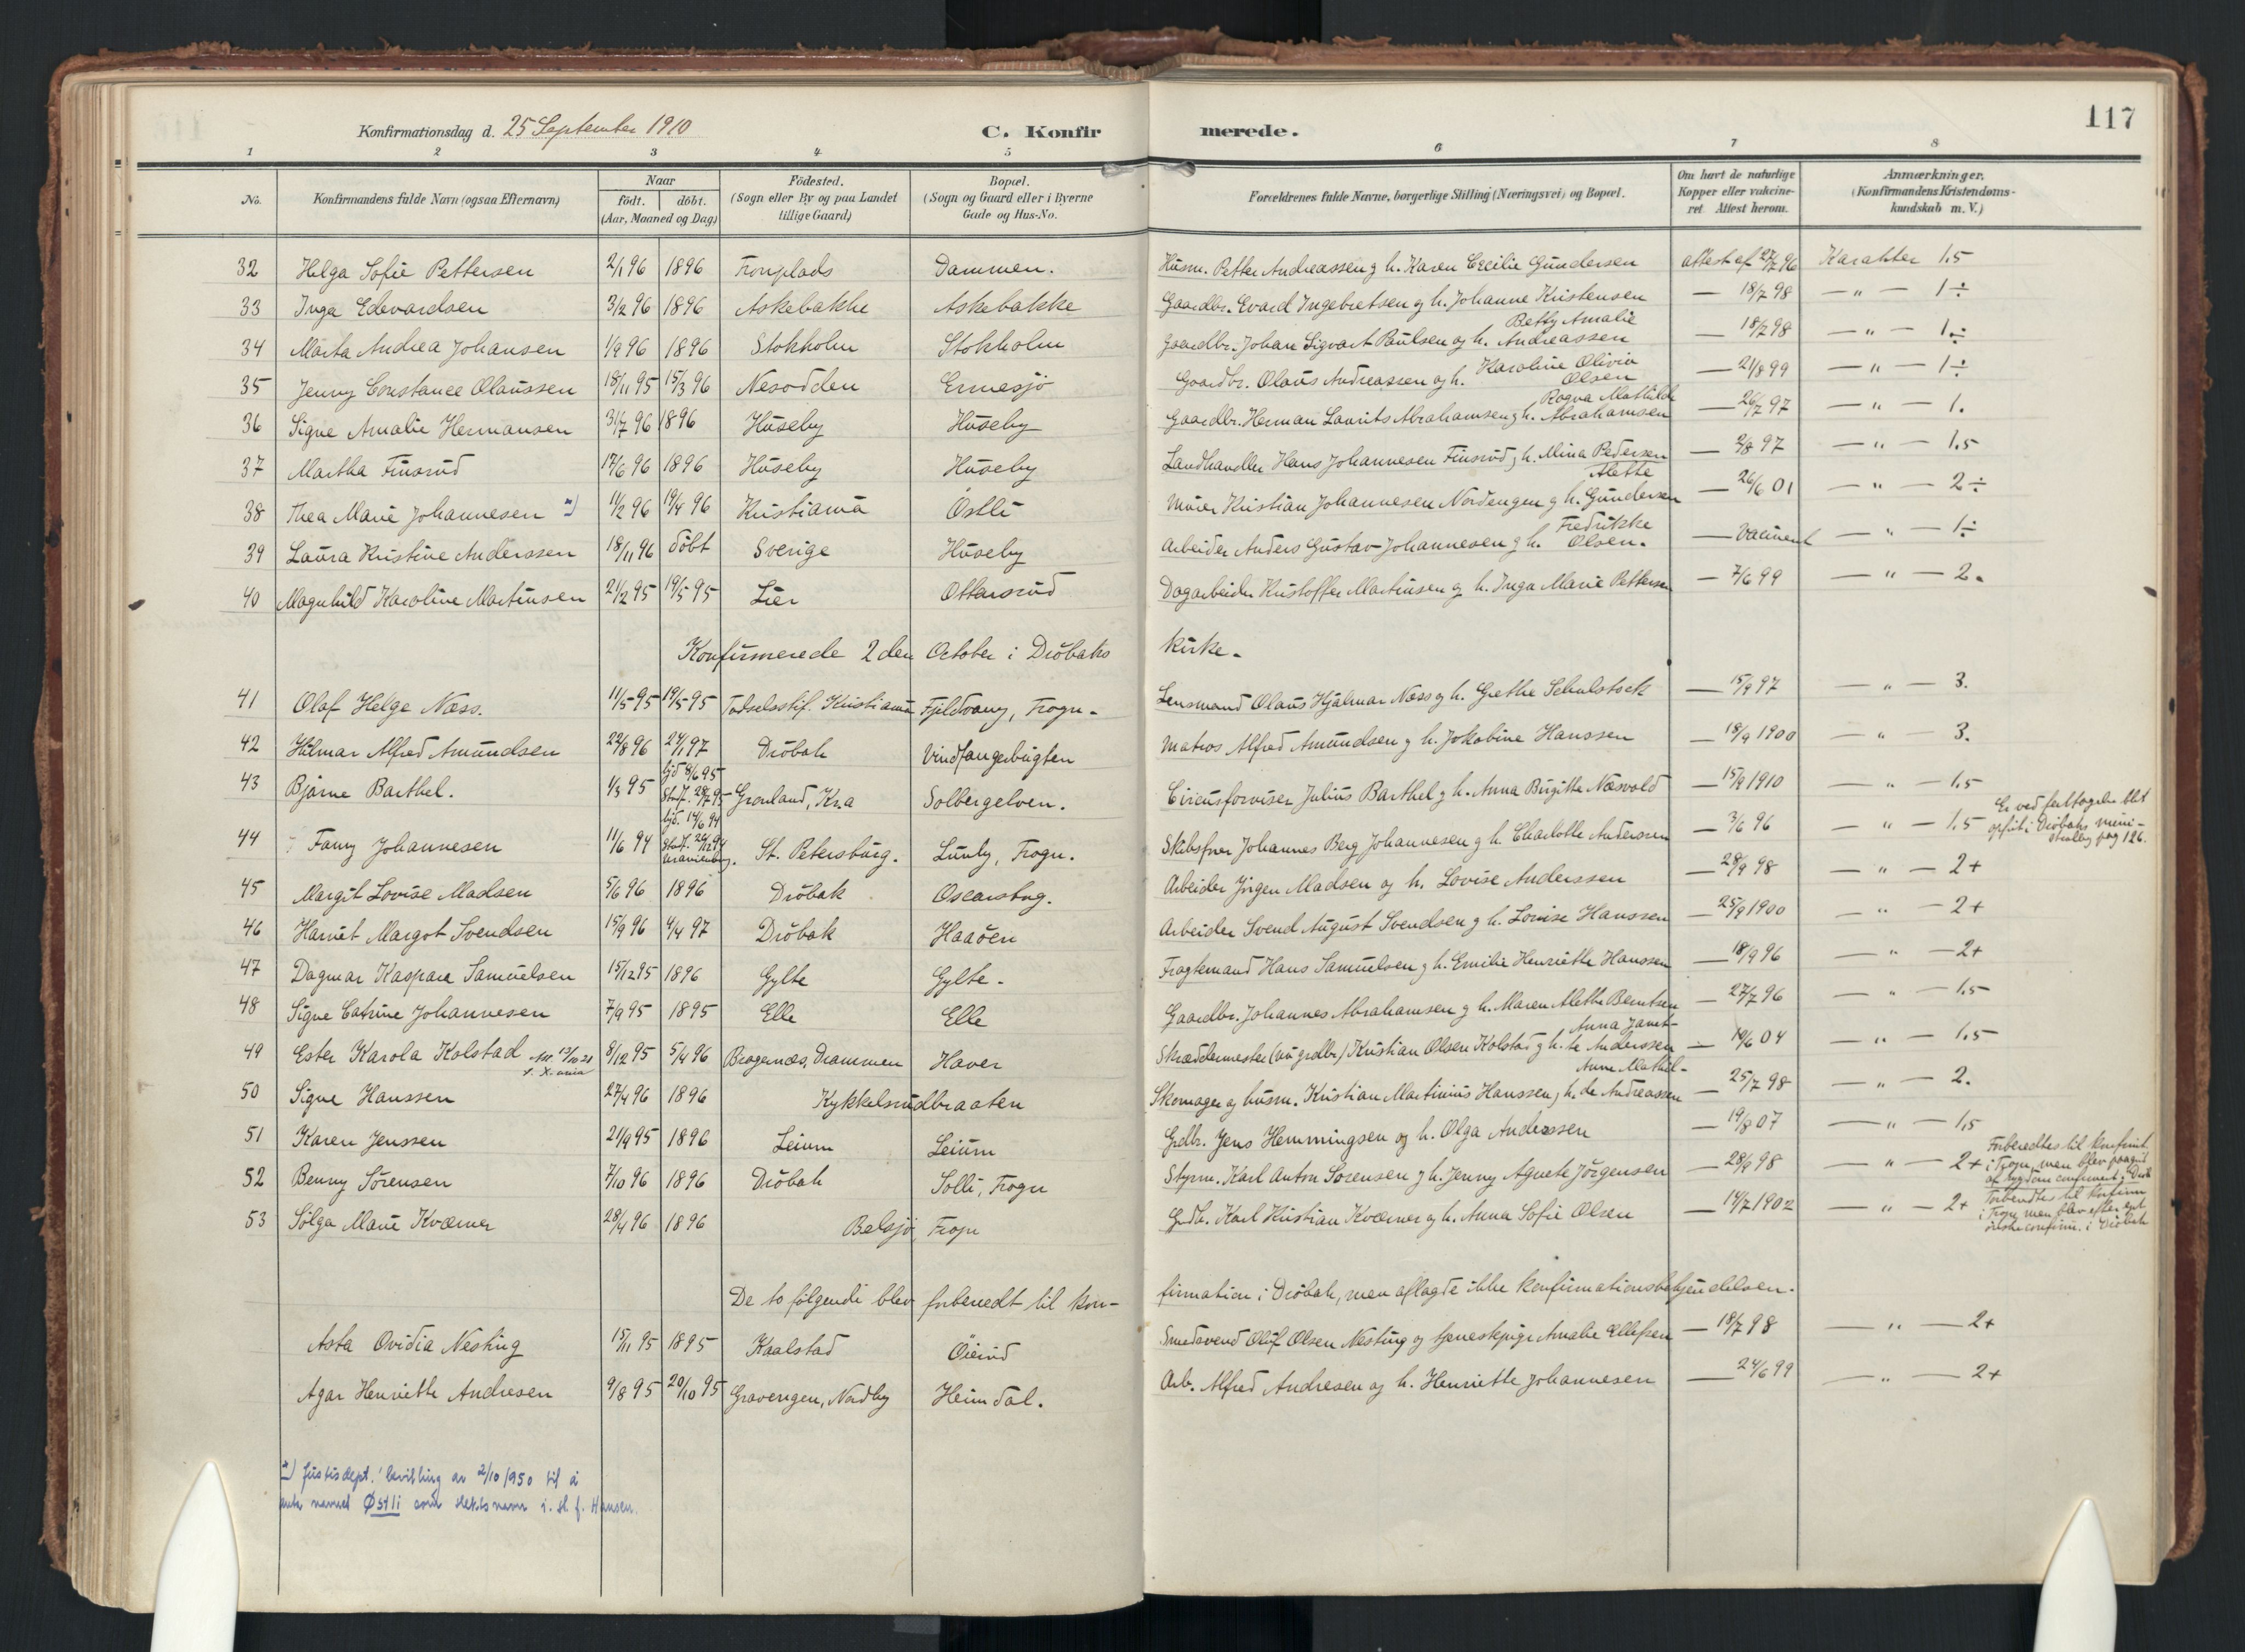 117
Konfirmationsdag d. 25 September 1910 C. Konfirmerede.
1 2 3 4 5 6 7 8
No. Konfirmandens fulde Navn (ogsaa Efternavn) Naar födt. döbt. (Aar, Maaned og Dag) Födested. (Sogn eller By og paa Landet tillige Gaard) Bopæl. (Sogn og Gaard eller i Byerne Gade og Hus-No. Forældrenes fulde Navne, borgerlige Stilling (Næringsvei) og Bopæl. Om havt de naturlige Kopper eller vakcineret. Attest herom. Anmærkninger. (Konfirmandens Kristendomskundskab m. V.)
32 Helga Sofie Pettersen 2/1 96 1896 Fronplads Dammen. Husm. Petter Andreassen g h. Karen Cecilie Gundersen attest af 27/7 96 Karakter 1.5
33 Inga Edevardsen 3/2 96 1896 Askebakke Askebakke Gaardbr. Evard Ingebretsen og h. Johanne Kristensen — 18/7 98 — " — 1÷
34 Marta Andrea Johansen 1/9 96 1896 Stokholm Stokholm Gaardbr. Johan Sigvart Paulsen og h. Betty Amalie Andreassen — 18/7 98 — " — 1÷
35 Jenny Constance Olaussen 18/11 95 15/3 96 Nesodden Emmesjö Gaardbr. Olaus Andreassen og h. Karoline Olivia Olsen — 21/8 99 — " — 1÷
36 Signe Amalie Hermansen 31/7 96 1896 Huseby Huseby Gaardbr. Herman Laurits Abrahamsen g h. Ragna Mathilde Abrahamsen — 26/7 97 — " — 1.
37 Martha Finsrud 17/6 96 1896 Huseby Huseby Landhandler Hans Johannesen Finsrud g h. Mina Pedersen — 2/8 97 — " — 1.5
38 Thea Marie Johannesen *) 11/2 96 19/4 96 Kristiania Östli Murer Kristian Johannesen Nordengen g h. Alette Gundersen — 26/6 01 — " — 2÷
39 Laura Kristine Anderssen 18/11 96 döbt Sverige Huseby Arbeider Anders Gustav Johannesen g h. Fredrikke Olsen. — Vaccineret — " — 1÷
40 Magnhild Karoline Martinsen 21/2 95 19/5 95 Lier Ottarsrud Dagarbeider Kristoffer Martinsen og h. Inga Marie Pettersen — 7/6 99 — " — 2.
Konfirmerede 2 den October i Dröbaks kirke.
41 Olaf Helge Næss. 11/5 95 19/5 95 Fødselsstif. Kristiania Fjeldvang, Frogn. Lensmand Olaus Hjalmar Næss og h. Grethe Schulstock — 15/9 97 — " — 3.
42 Hilmar Alfred Amundsen 22/8 96 24/1 97 Dröbak Vindfangerbugten Matros Alfred Amundsen g h. Jokobine Hanssen — 18/9 1900 — " 3.
43 Bjarne Barthel. 1/3 95 hjd 8/6 95 Stadf. 28/7 95 Grønland, Kra Solbergelven. Circusforviser Julius Barthel g h. Anna Birgitte Næsvold — 15/9 1910 — " — 1.5
44 Fanny Johannesen 11/6 94 hjd. 14/6 94 Stadf. 26/12 94 Uranienborg. St. Petersburg. Lunby, Frogn. Skibsfører Johannes Berg Johannesen g h. Charlotte Andersen — 3/6 96 — " — 1.5 Er ved feiltagelse blit opført i Dröbaks ministerialbog pag 126.
45 Margit Lovise Madsen 5/6 96 1896 Dröbak Oscarsbog. Arbeider Jörgen Madsen og h. Lovise Anderssen — 28/9 98 — " — 2+
46 Harriet Margot Svendsen 15/9 96 4/4 97 Dröbak Haaöen Arbeider Svend August Svendsen g h. Lovise Hanssen — 25/9 1900 — " — 2+
47 Dagmar Kaspara Samuelsen 15/12 95 1896 Gylte Gylte. Fragtemand Hans Samuelsen g h. Emilie Henriette Hanssen — 18/9 96 — " — 2+
48 Signe Catrine Johannesen 7/9 95 1895 Elle Elle Gaardbr. Johannes Abrahamsen g h. Maren Alette Berntsen — 27/7 96 — " — 1.5
49 Ester Karola Kolstad 8/12 95 5/4 96 Bragernæs, Drammen Haver Skræddermester (nu grdbr.) Kristian Olsen Kolstad g h. Anna Janette Anderssen — 19/6 04 — " — 1.5
50 Signe Hanssen 27/4 96 1896 Kykkelsrudbraaten Skomager og husm. Kristian Martinius Hanssen g h. Anne Mathilde Andreassen — 25/7 98 — " — 2.
51 Karen Jenssen 21/9 95 1896 Leium Leium Grdbr. Jens Hemmingsen og h. Olga Anderssen — 19/8 07 — " — 1.5
52 Benny Sörensen 7/10 96 1896 Dröbak Solli, Frogn Styrm. Karl Anton Sørensen g h. Jenny Agnete Jörgensen — 28/9 98 — " — 2+ Forberedtes til konfirmt. i Frogn, men blev paagrd. af sygdom confirmert i Dröb.
53 Solga Marie Kværner 28/4 96 1896 Belsjö, Frogn Grdb. Karl Kristian Kværner og h. Anna Sofie Olsen — 14/7 1902 — " — 2+ Forberedtes til konfirm. i Frogn men blev efter eget önske confirm. i Dröbak
De to følgende blev forberedt til konfirmation i Dröbak, men aflagde ikke konfirmationsbekjendelsen.
Asta Ovidia Nesting 15/11 95 1895 Kaalstad Öierud Smedsvend Oluf Olsen Nesting og tjenestepige Amalie Ellefsen — 18/7 98 — " — 2+
Agar Henriette Andresen 9/8 95 20/10 95 Gravengen, Nordby Heimdal. Arb. Alfred Andresen og h. Henriette Johannesen — 24/6 99 — " — 2+
*) Justisdept. bevilling av 2/10 1950 til å
anta navnet Østli som slektsnavn i. st. f. Hansen.